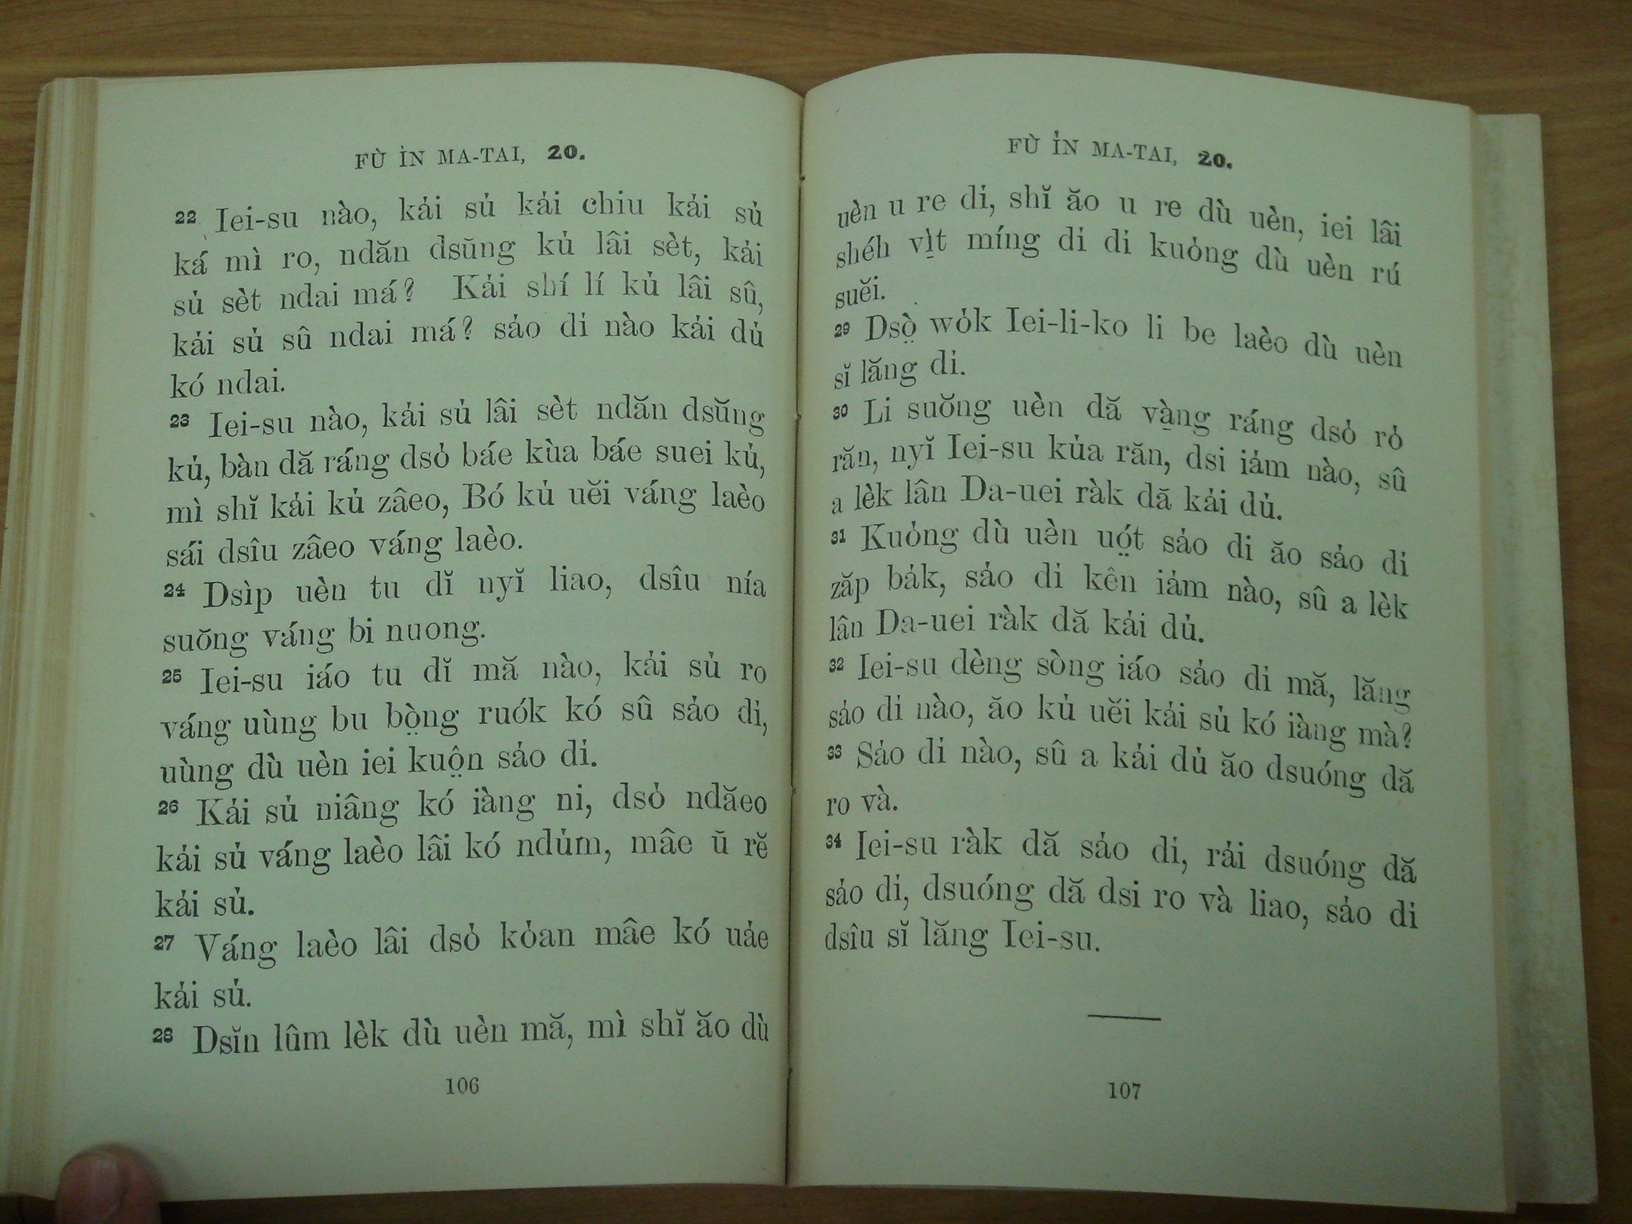 FÙ ỈN MA-TAI, 20.
22 Iei-su nào, kải sủ kải chiu kải sủ
ká mì ro, ndăn dsŭng kủ lâi sèt, kải
sủ sèt ndai má? Kải shí lí kủ lâi sû,
kải sủ sû ndai má? sảo dỉ nào kải dủ
kó ndai.
23 Iei-su nào, kải sủ lâi sèt ndăn dsŭng
kủ, bàn dă ráng dsỏ báe kùa báe suei kủ,
mì shĭ kải kủ zâeo, Bó kủ uĕi váng laèo
sái dsîu zâeo váng laèo.
24 Dsìp uèn tu dĭ nyĭ liao, dsîu nía
suŏng váng bi nuong.
25 Iei-su iáo tu dĭ mă nào, kải sủ ro
váng uùng bu bò̤ng ruók kó sû sảo dỉ,
uùng dù uèn iei kuô̤n sảo dỉ.
26 Kải sủ niâng kó iàng ni, dsỏ ndăeo
kải sủ váng laèo lâi kó ndủm, mâe ŭ rĕ
kải sủ.
27 Váng laèo lâi dsỏ kỏan mâe kó uảe
kải sủ.
28 Dsĭn lûm lèk dù uèn mă, mì shĭ ăo dù
106
FÙ ỈN MA-TAI, 20.
uèn u re dỉ, shĭ ăo u re dù uèn, iei lâi
shéh vì̤t míng dỉ di kuỏng dù uèn rú
suĕi.
29 Dsò̤ wỏk Iei-li-ko li be laèo dù uèn
sĭ lăng dỉ.
30 Li suŏng uèn dă và̤ng ráng dsỏ rỏ
răn, nyĭ Iei-su kủa răn, dsi iảm nào, sû
a lèk lân Da-uei ràk dă kải dủ.
31 Kuỏng dù uèn uó̤t sảo di ăo sảo dỉ
zăp bảk, sảo dỉ kên iảm nào, sû a lèk
lân Da-uei ràk dă kải dủ.
32 Iei-su dèng sòng iáo sảo di mă, lăng
sảo dỉ nào, ăo kủ uĕi kải sủ kó iàng mà?
33 Sảo dỉ nào, sû a kải dủ ăo dsuóng dă
ro và.
34 Iei-su ràk dă sảo dỉ, rải dsuóng dă
sảo dỉ, dsuóng dă dsi ro và liao, sảo dỉ
dsîu sĭ lăng Iei-su.
107